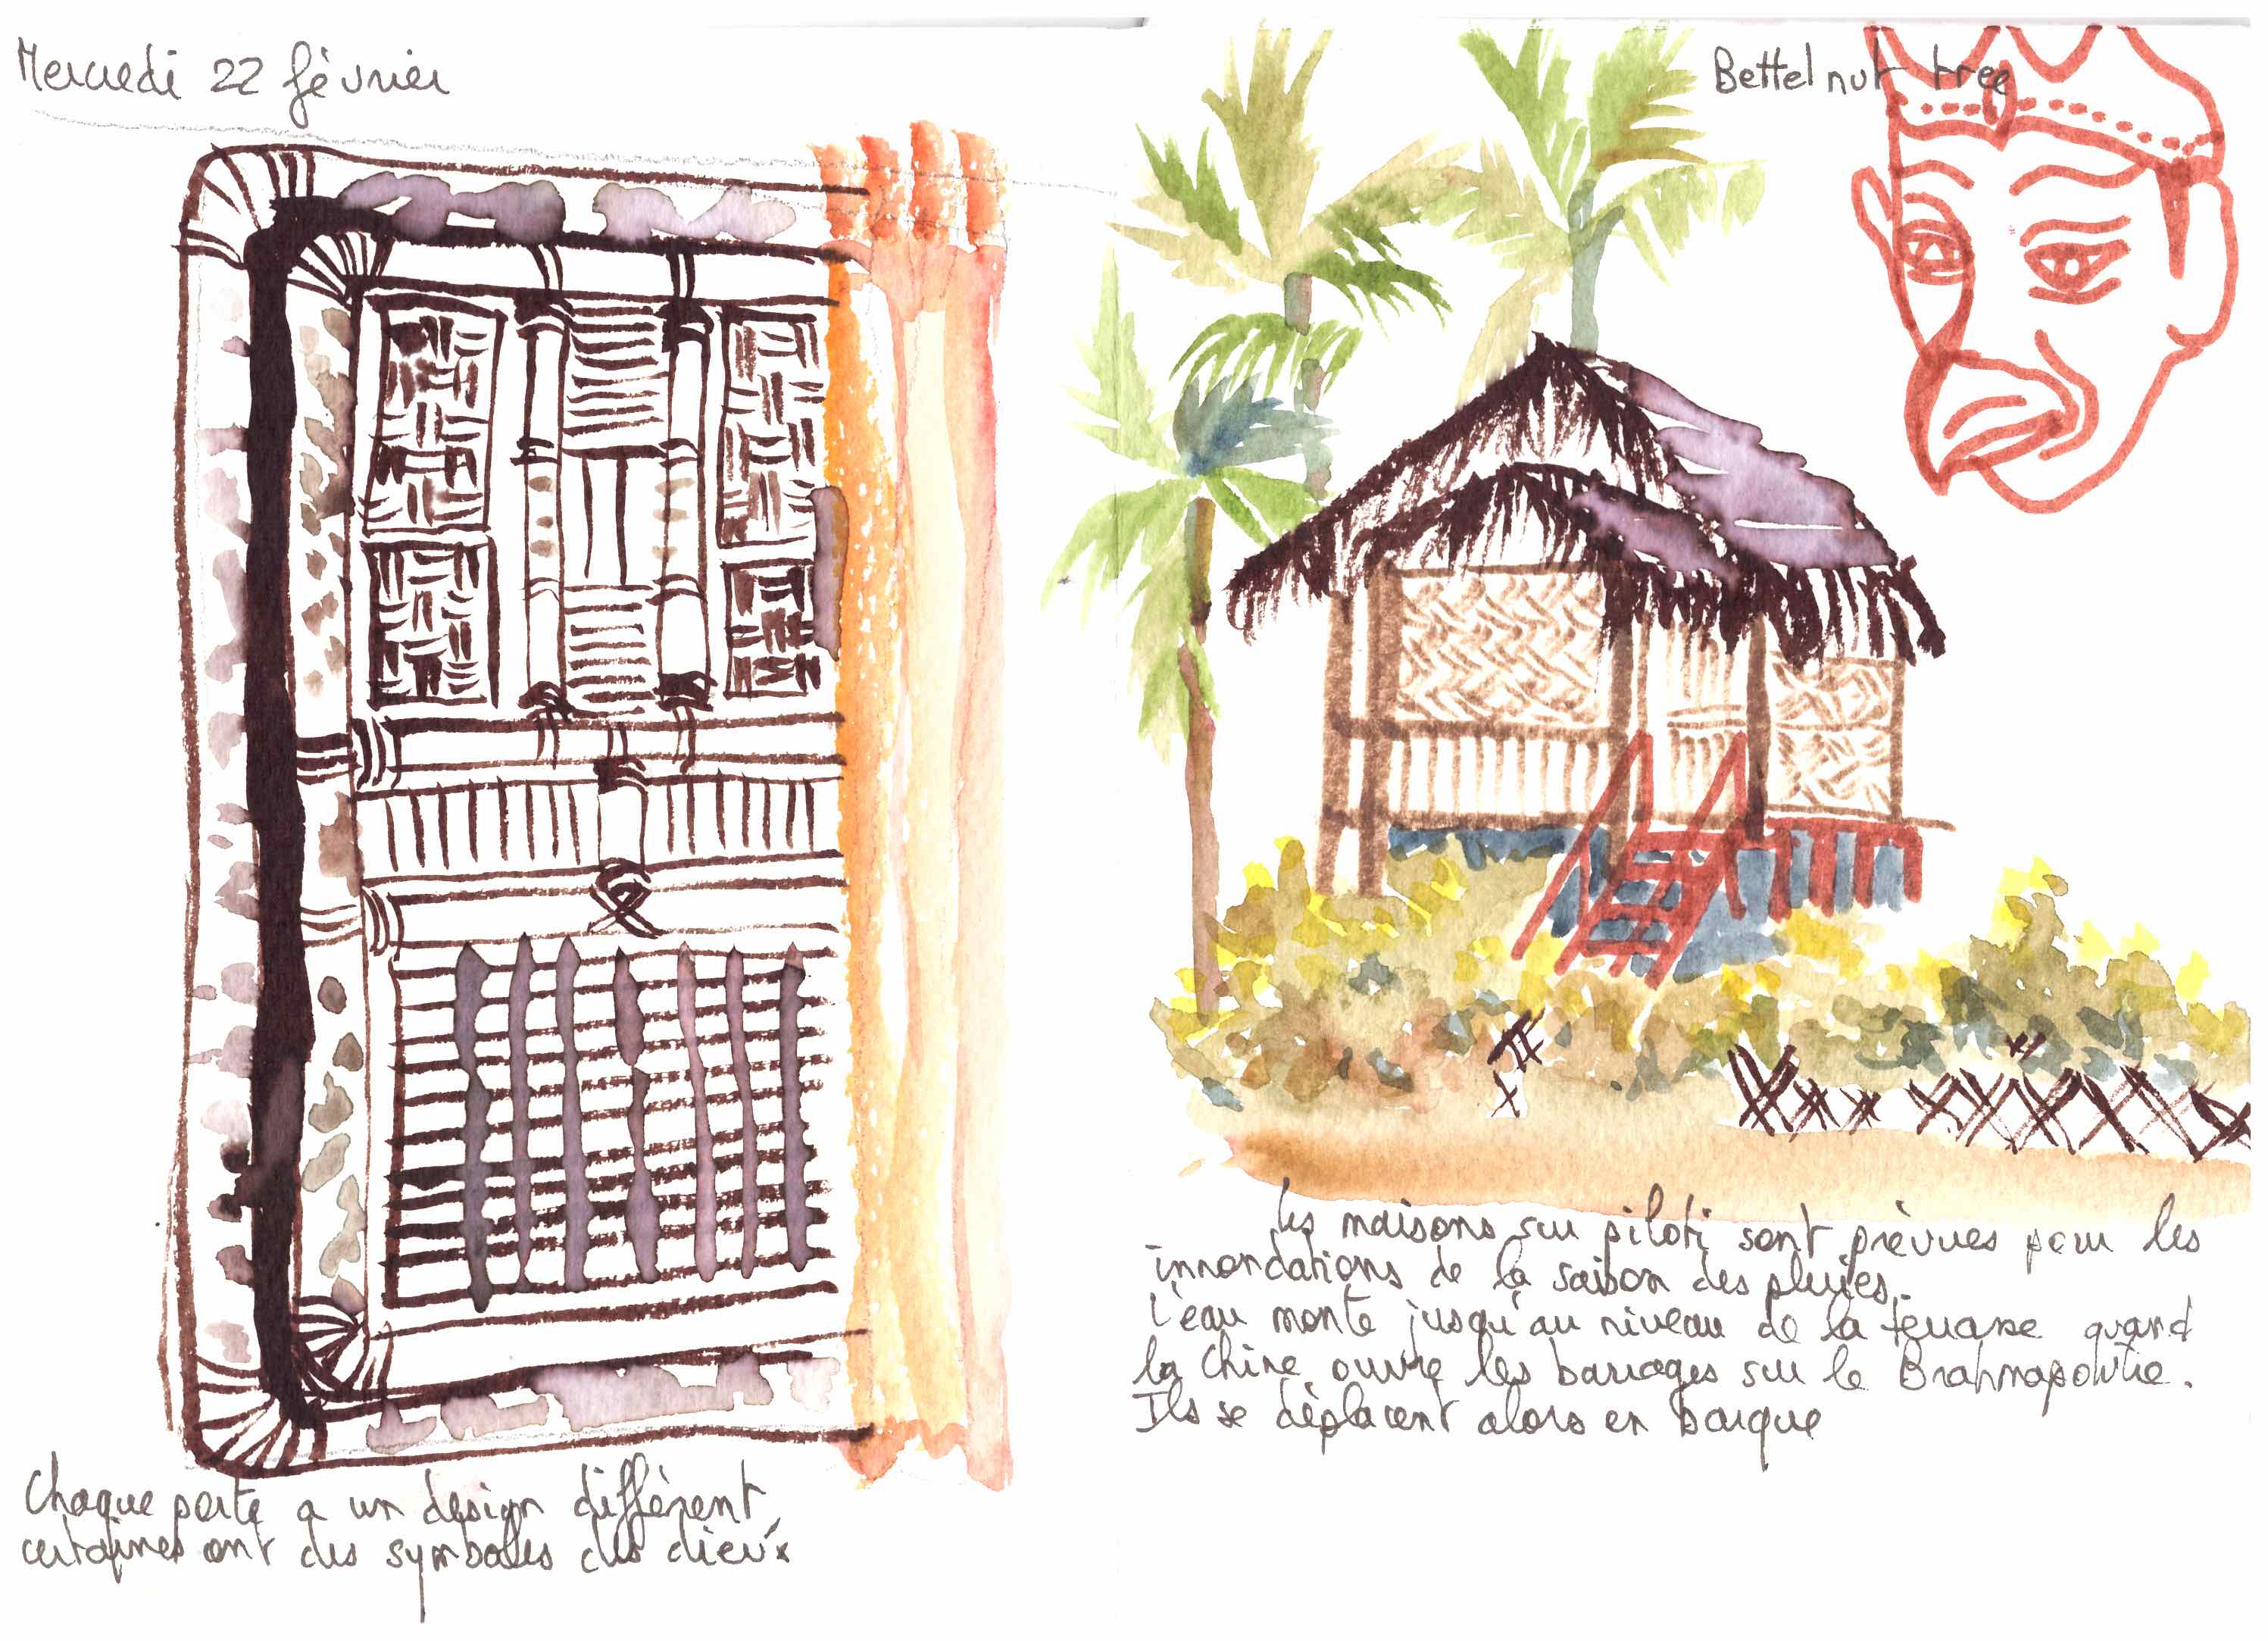 Mercredi 22 fèvrier
Bettel nut tree
Chaque porte a un design diffèrent
certaines ont des symboles des dieux
Les maisons sur piloti sont prèvues pour les
innondations de la saison des pluies.
L'eau monte jusqu'au niveau de la terrasse quand
la Chine ouvre les barrages sur le Brahmapoutre.
Ils se dèplacent alors en barque